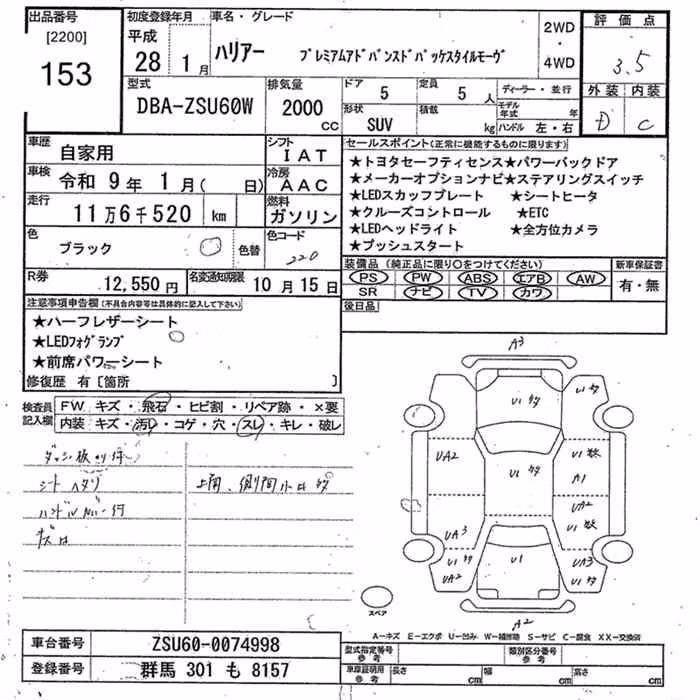 出品番号
[2200]
153
初度登録年月
平成
28 1月
車名・グレード
ハリアー プレミアムアドバンスドパッケスタイルモーヴ
2WD
・
4WD
評価点
3.5
外装 内装
D C
型式
DBA-ZSU60W
排気量
2000
cc
ドア
5
定員
5 人
形状
SUV
積載
kg
ディーラー・並行
モデル年式 年
ハンドル 左・右
車歴
自家用
シフト
IAT
車検
令和 9年 1月( 日)
冷房
AAC
走行
11万6千520 km
燃料
ガソリン
色
ブラック
色替
色コード
220
R券
12,550円
名変通知期限
10月15日
セールスポイント(正常に機能するものに限ります)
★トヨタセーフティセンス★パワーバックドア
★メーカーオプションナビ★ステアリングスイッチ
★LEDスカッフプレート ★シートヒータ
★クルーズコントロール ★ETC
★LEDヘッドライト ★全方位カメラ
★プッシュスタート
装備品(純正品に限り○をつけてください)
PS PW ABS エアB AW
SR ナビ TV カワ
新車保証書
有・無
後日品
注意事項申告欄(不具合内容等は具体的に記入して下さい)
★ハーフレザーシート
★LEDフォグランプ
★前席パワーシート
修復歴 有〔箇所 〕
検査員
記入欄
FW キズ・飛石・ヒビ割・リペア跡・×要
内装 キズ・汚レ・コゲ・穴・スレ・キレ・破レ
シートヘタリ
A3
U1
UA2
U1
A1
UA2
U1
UA3
U1
UA2
U1
UA3
U1
A2
スペア
A-キズ E-エクボ U-凹み W-補修跡 S-サビ C-腐食 XX-交換済
車台番号 ZSU60-0074998
登録番号 群馬 301 も 8157
型式指定番号
参考
類別区分番号
参考
車庫証明用
参考
長さ cm 幅 cm 高さ cm